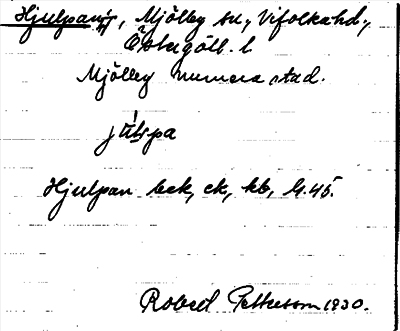 Hjulpan, Mjölby sn, Vifolka hd,
Östergötl. l
Mjölby numera stad.
Hjulpan bek, ek, kb, G.45.
Robert Pettersson 1930.